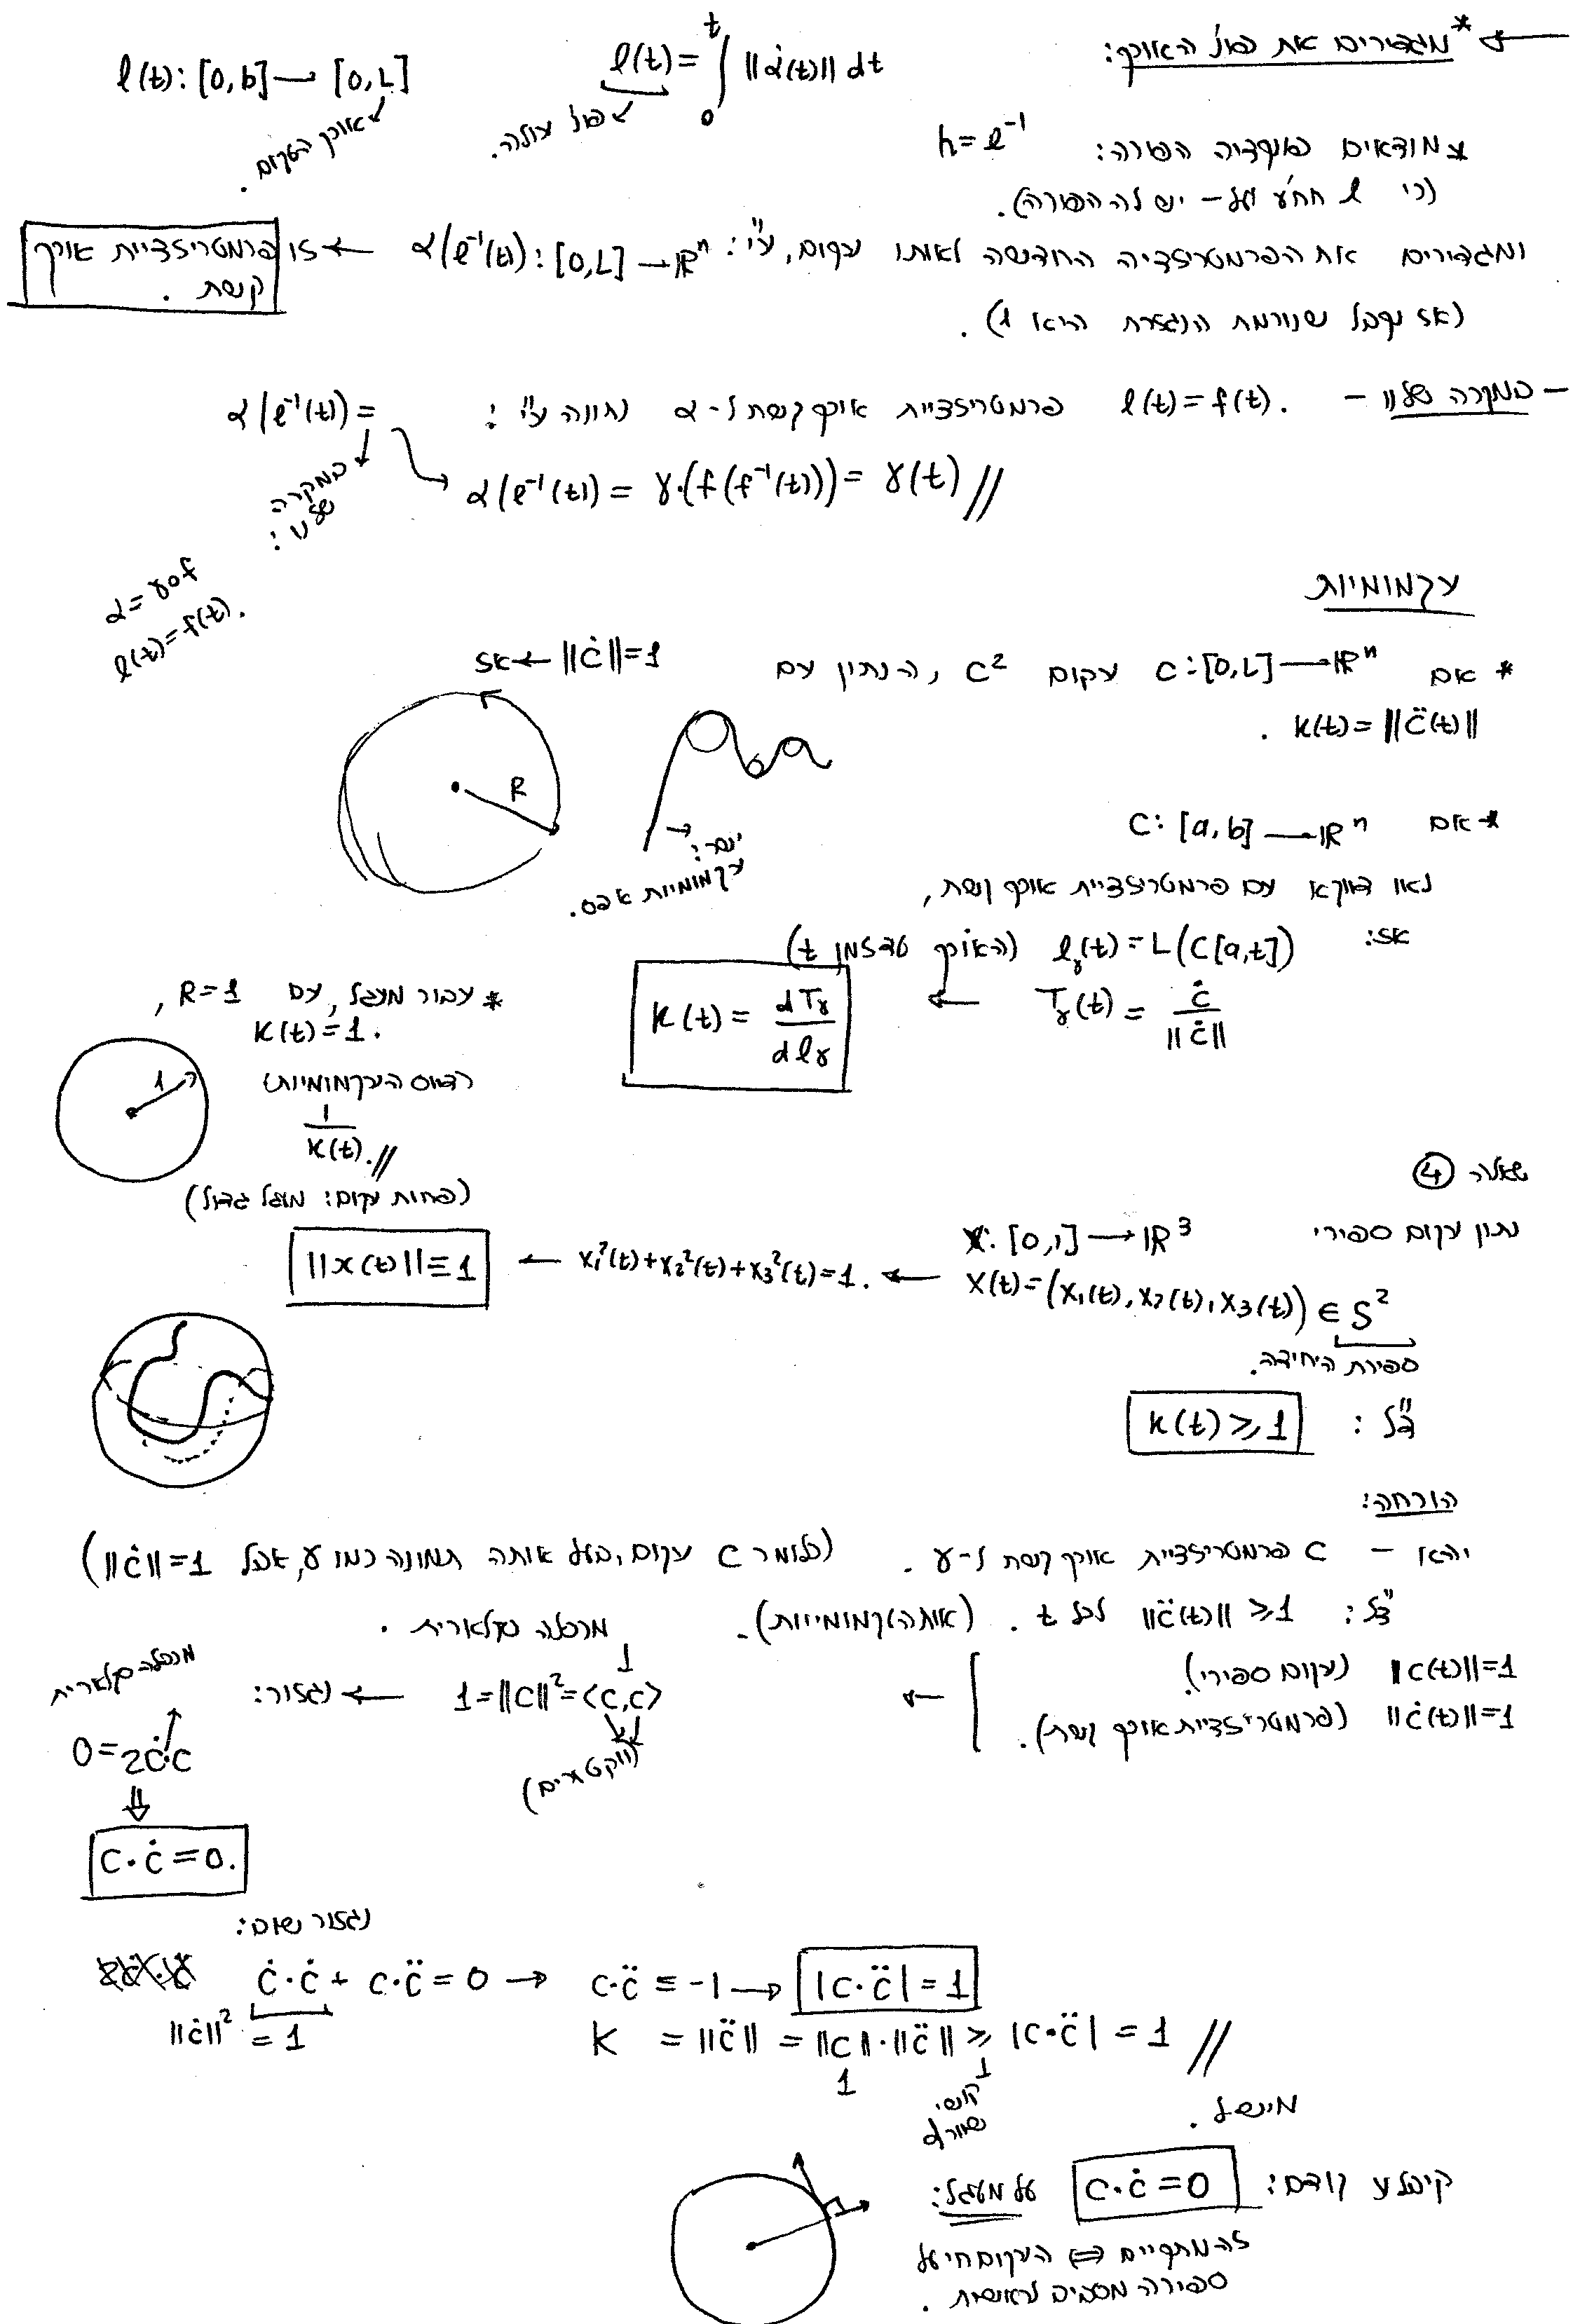 * מגדירים את פונ' האורך:
l(t) = ∫₀ᵗ ||α̇(t)|| dt
l(t): [0,b] → [0,L]
פונ' עולה.
אורך העקום.
* מוצאים פונקציה הפוכה: h = l⁻¹
(כי l חח"ע ועל – יש לה הפוכה).
ומגדירים את הפרמטריזציה החדשה לאותו עקום, ע"י: α(l⁻¹(t)): [0,L] → ℝⁿ ← זו פרמטריזציית אורך קשת.
(אז נקבל שנורמת הנגזרת היא 1).
– במקרה שלנו – l(t) = f(t). פרמטריזציית אורך קשת ל-α נתונה ע"י: α(l⁻¹(t)) =
α(l⁻¹(t)) = γ·(f(f⁻¹(t))) = γ(t) //
במקרה שלנו:
α = γ∘f
l(t) = f(t).
עקמומיות
* אם C: [0,L] → ℝⁿ עקום C², הנתון עם ||ċ|| = 1 ← אז
k(t) = ||c̈(t)||.
R
ישר:
עקמומיות אפס.
* אם C: [a,b] → ℝⁿ
לאו דווקא עם פרמטריזציית אורך קשת,
אז: l_γ(t) = L(C[a,t]) (האורך עד זמן t)
T_γ(t) = ċ/||ċ|| ← k(t) = dT_γ/dl_γ
* עבור מעגל, עם R=1,
k(t) = 1.
1
רדיוס העקמומיות:
1/k(t). //
(פחות עקום: מעגל גדול)
שאלה 4
נתון עקום ספירי x: [0,1] → ℝ³
x(t) = (x₁(t), x₂(t), x₃(t)) ∈ S² ← x₁²(t)+x₂²(t)+x₃²(t)=1. ← ||x(t)|| ≡ 1
ספירת היחידה.
צ"ל: k(t) ≥ 1
הוכחה:
יהא – C פרמטריזציית אורך קשת ל-γ. (כלומר C עקום, בעל אותה תמונה כמו γ, אבל ||ċ||=1)
צ"ל: ||c̈(t)|| ≥ 1 לכל t. (אותה עקמומיות).
||c(t)||=1 (עקום ספירי)
||ċ(t)||=1 (פרמטריזציית אורך קשת).
מכפלה סקלארית.
← 1 = ||c||² = <c,c> ← נגזור:
(וקטורים)
מכפלה סקלארית
0 = 2ċ·c
⇓
c·ċ = 0.
נגזור שוב:
ċ·ċ + c·c̈ = 0 → c·c̈ ≡ -1 → |c·c̈| = 1
||ċ||² = 1
k = ||c̈|| = ||c||·||c̈|| ≥ |c·c̈| = 1 //
1
קושי
שוורץ
מ.ש.ל.
קיבלנו קודם: c·ċ = 0 על מעגל:
זה מתקיים ⇔ העקום חי על
ספירה מסביב לראשית.